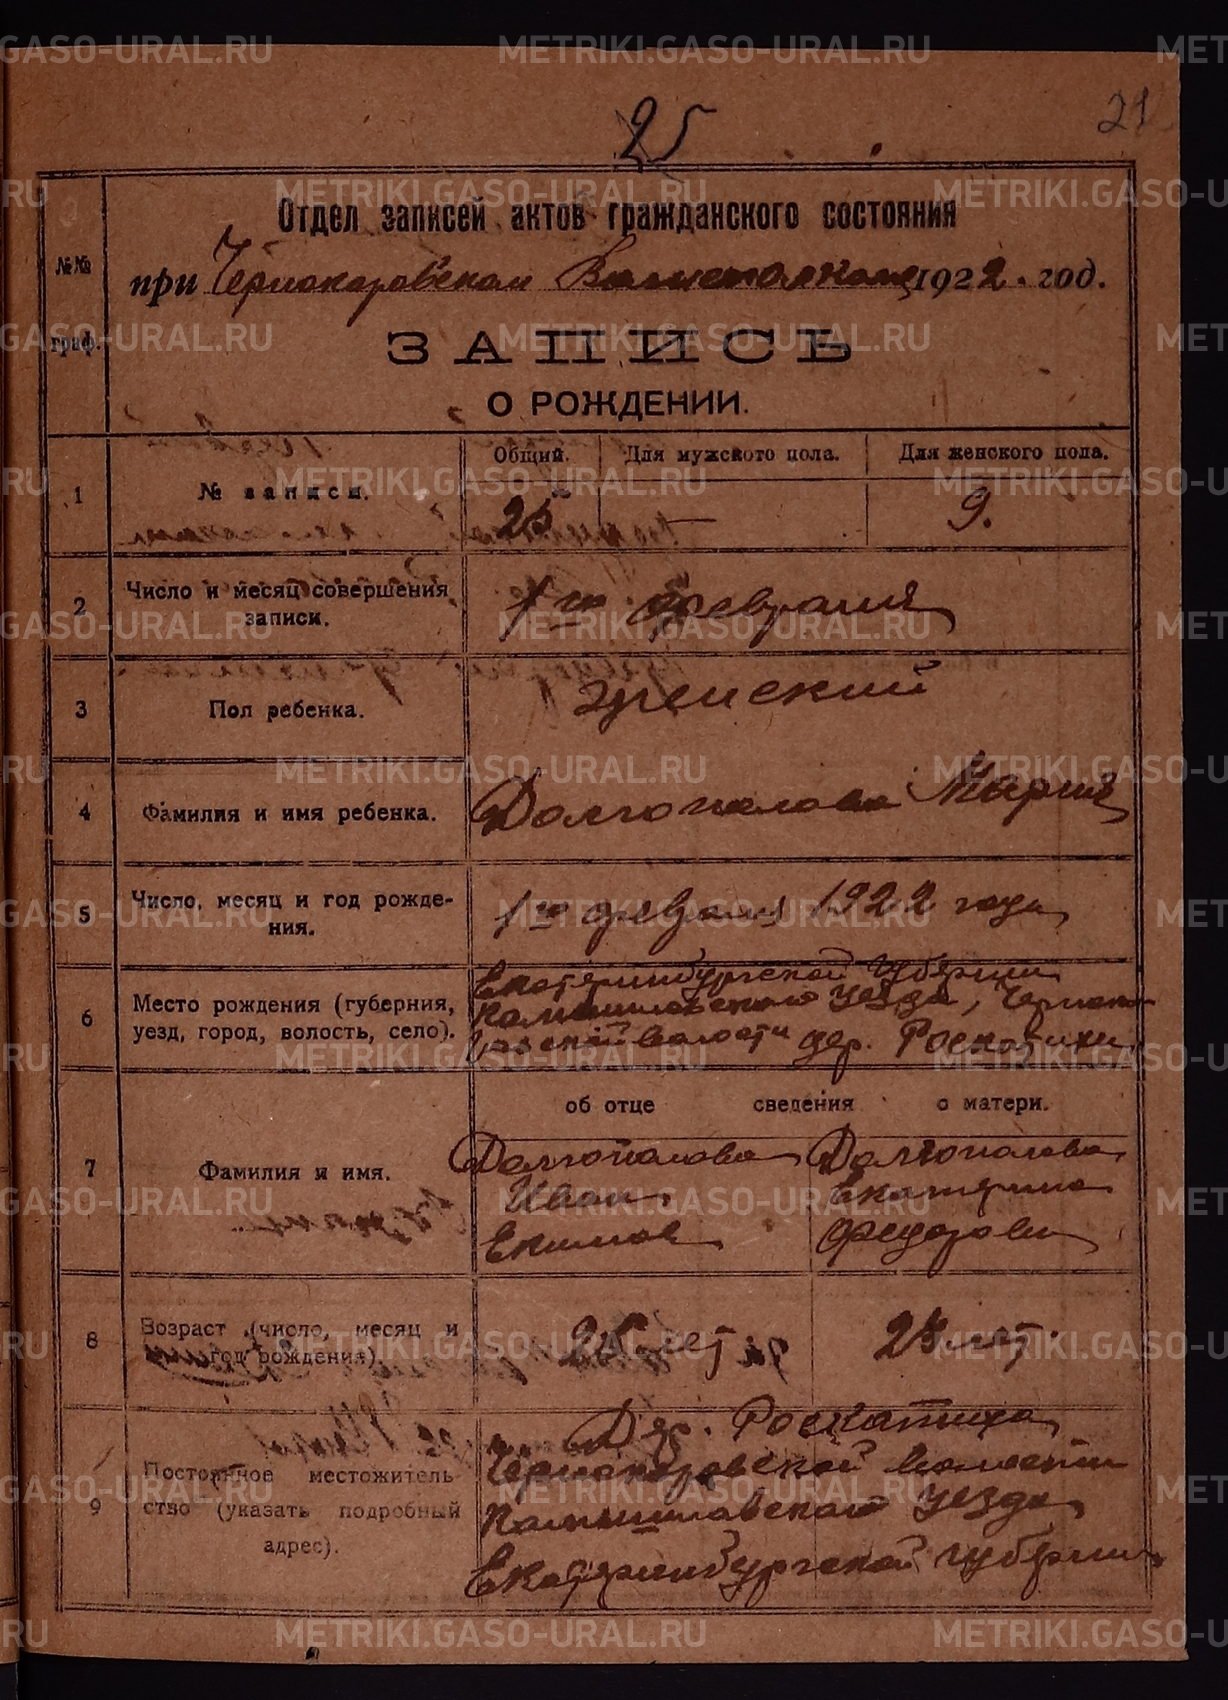 21
25
Отдел записей актов гражданского состояния
при Чернокоровском 1922. год.
№№
граф.
ЗАПИСЬ
О РОЖДЕНИИ.
Общий. Для мужского пола. Для женского пола.
1 № записи. 25 — 9.
2 Число и месяц совершения
записи.
1го февраля
3 Пол ребенка. женский
4 Фамилия и имя ребенка. Долгополова Мария
5 Число, месяц и год рожде-
ния.
1го февраля 1922 года
6 Место рождения (губерния,
уезд, город, волость, село).
Екатеринбургской губернии
Камышловского уезда, Черноко-
ровской волости дер. Роскатихи
об отце сведения о матери.
7 Фамилия и имя.
Долгополова Долгополова
Иван Екатерина
Екимов Федоровн
8 Возраст (число, месяц и
год рождения).
25 лет 25 лет.
9 Постоянное местожитель-
ство (указать подробный
адрес).
Дер. Роскатиха
Чернокоровской волости
Камышловского уезда
Екатеринбургской губернии
METRIKI.GASO-URAL.RU